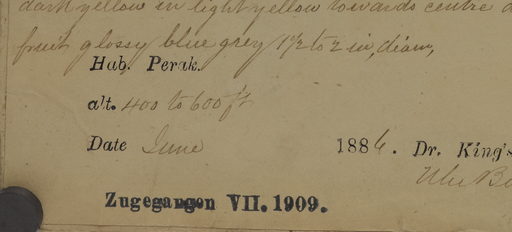 dark yellow in light yellow towards centre
fruit glossy blue grey 1½ to 2 in, diam,
Hab. Perak.
alt. 400 to 600 ft
Date June 1886. Dr. King's
Zugegangen VII. 1909.